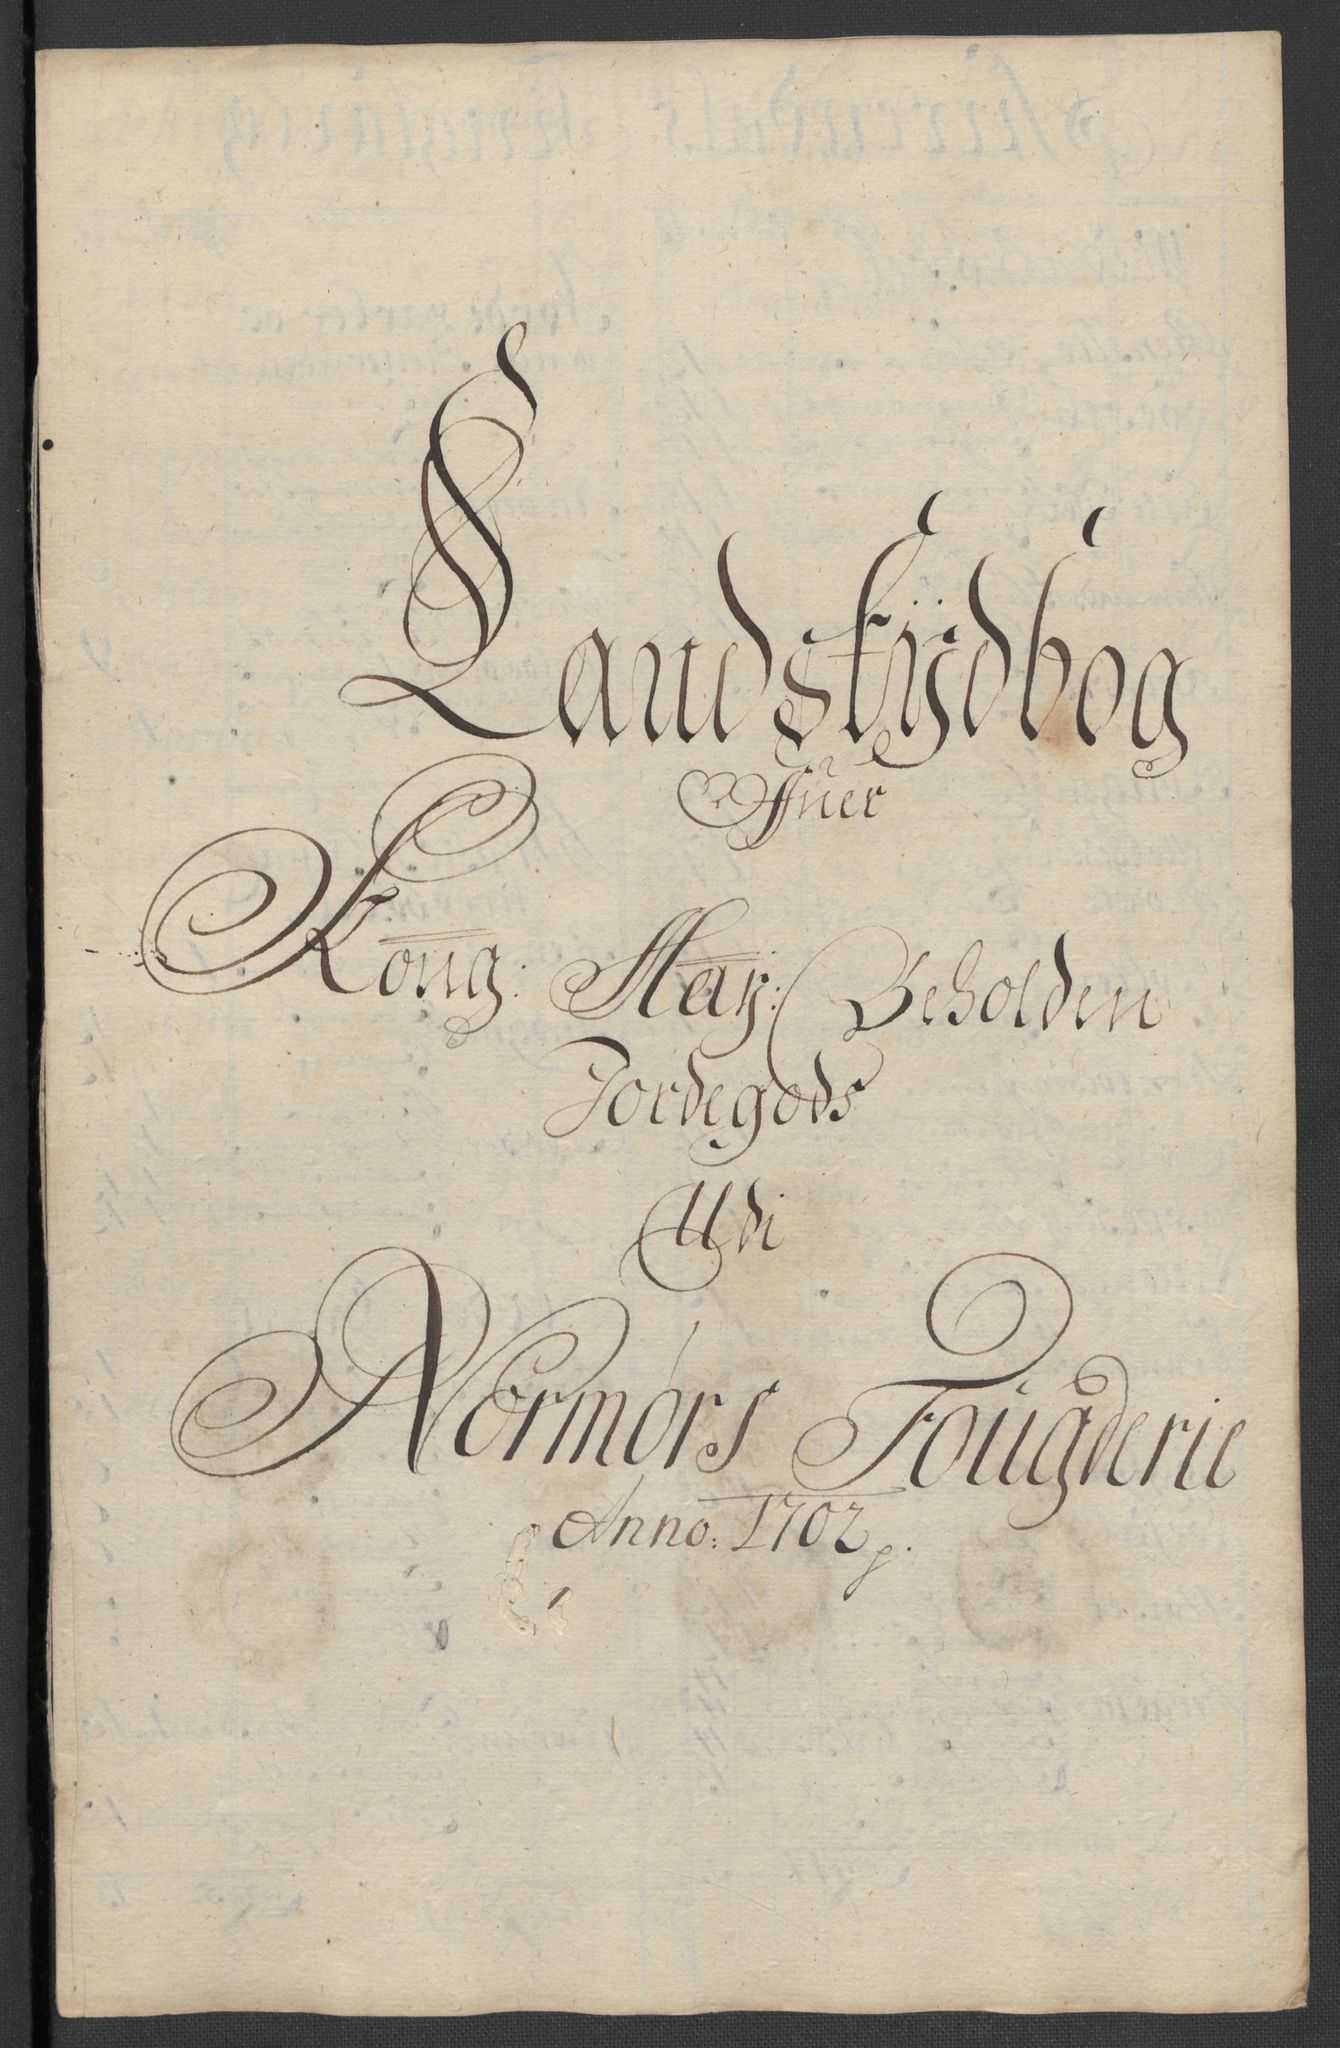 Landskÿdbog
Offuer
Kong: May: Beholden
Jordegods
Udi
Normørs Fougderie
Anno: 1702